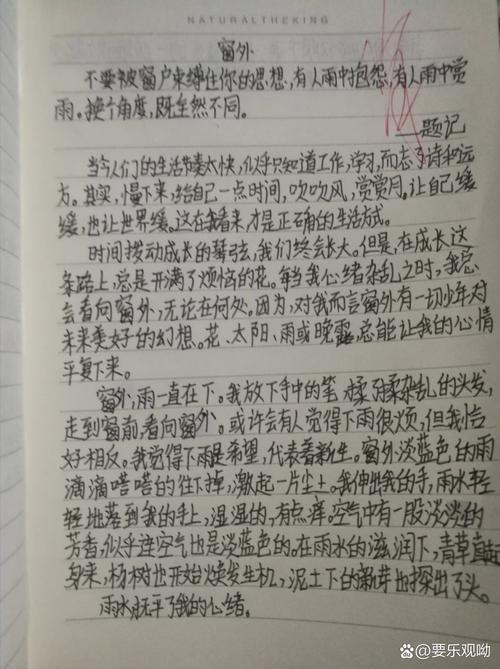 NATURALTHEKING
窗外
不要被窗户束缚住你的思想,有人雨中抱怨,有人雨中赏
雨。换个角度,既全然不同。
——题记
当今人们的生活节奏太快,似乎只知道工作,学习,而忘了诗和远
方。其实,慢下来,给自己一点时间,吹吹风,赏赏月。让自己缓
缓,也让世界缓。这在我看来才是正确的生活方式。
时间拨动成长的琴弦,我们终会长大。但是,在成长这
条路上,总是开满了烦恼的花。每当我心绪杂乱之时,我总
会看向窗外,无论在何处。因为,对我而言窗外有一切少年对
未来美好的幻想。花、太阳、雨或晚霞,总能让我的心情
平复下来。
窗外,雨一直在下。我放下手中的笔,揉了揉杂乱的头发,
走到窗前,看向窗外。或许会有人觉得下雨很烦,但我恰
好相反。我觉得下雨是希望,代表着新生。窗外淡蓝色的雨
滴滴嗒嗒的往下掉,激起一片尘土。我伸出我的手,雨水轻
轻地落到我的手上,湿湿的,有点痒。空气中有一股淡淡的
芳香,似乎连空气也是淡蓝色的。在雨水的滋润下,青草直起
身来,杨树也开始焕发生机,泥土下的新芽也探出了头。
雨水抚平了我的心绪。
百家号/要乐观呦